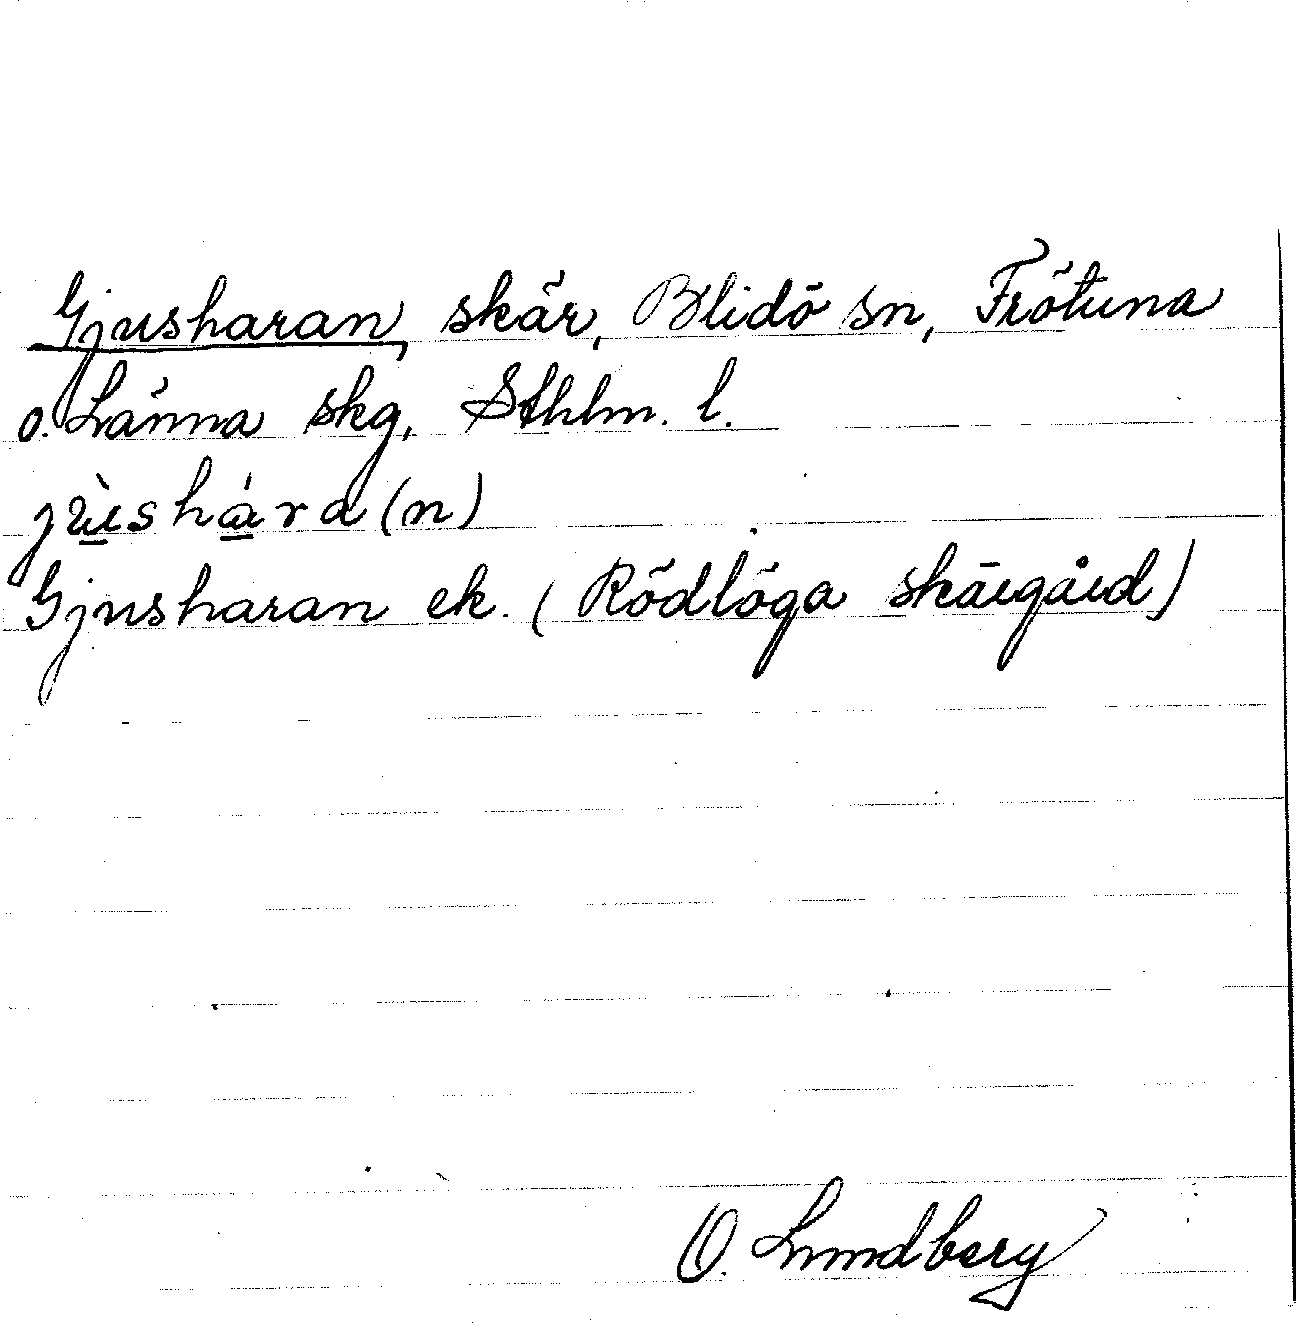 Gjusharan, skär, Blidö sn, Frötuna
o. Länna skg, Sthlm. l.
jùshára(n)
Gjusharan ek. (Rödlöga skärgård)
O. Lundberg